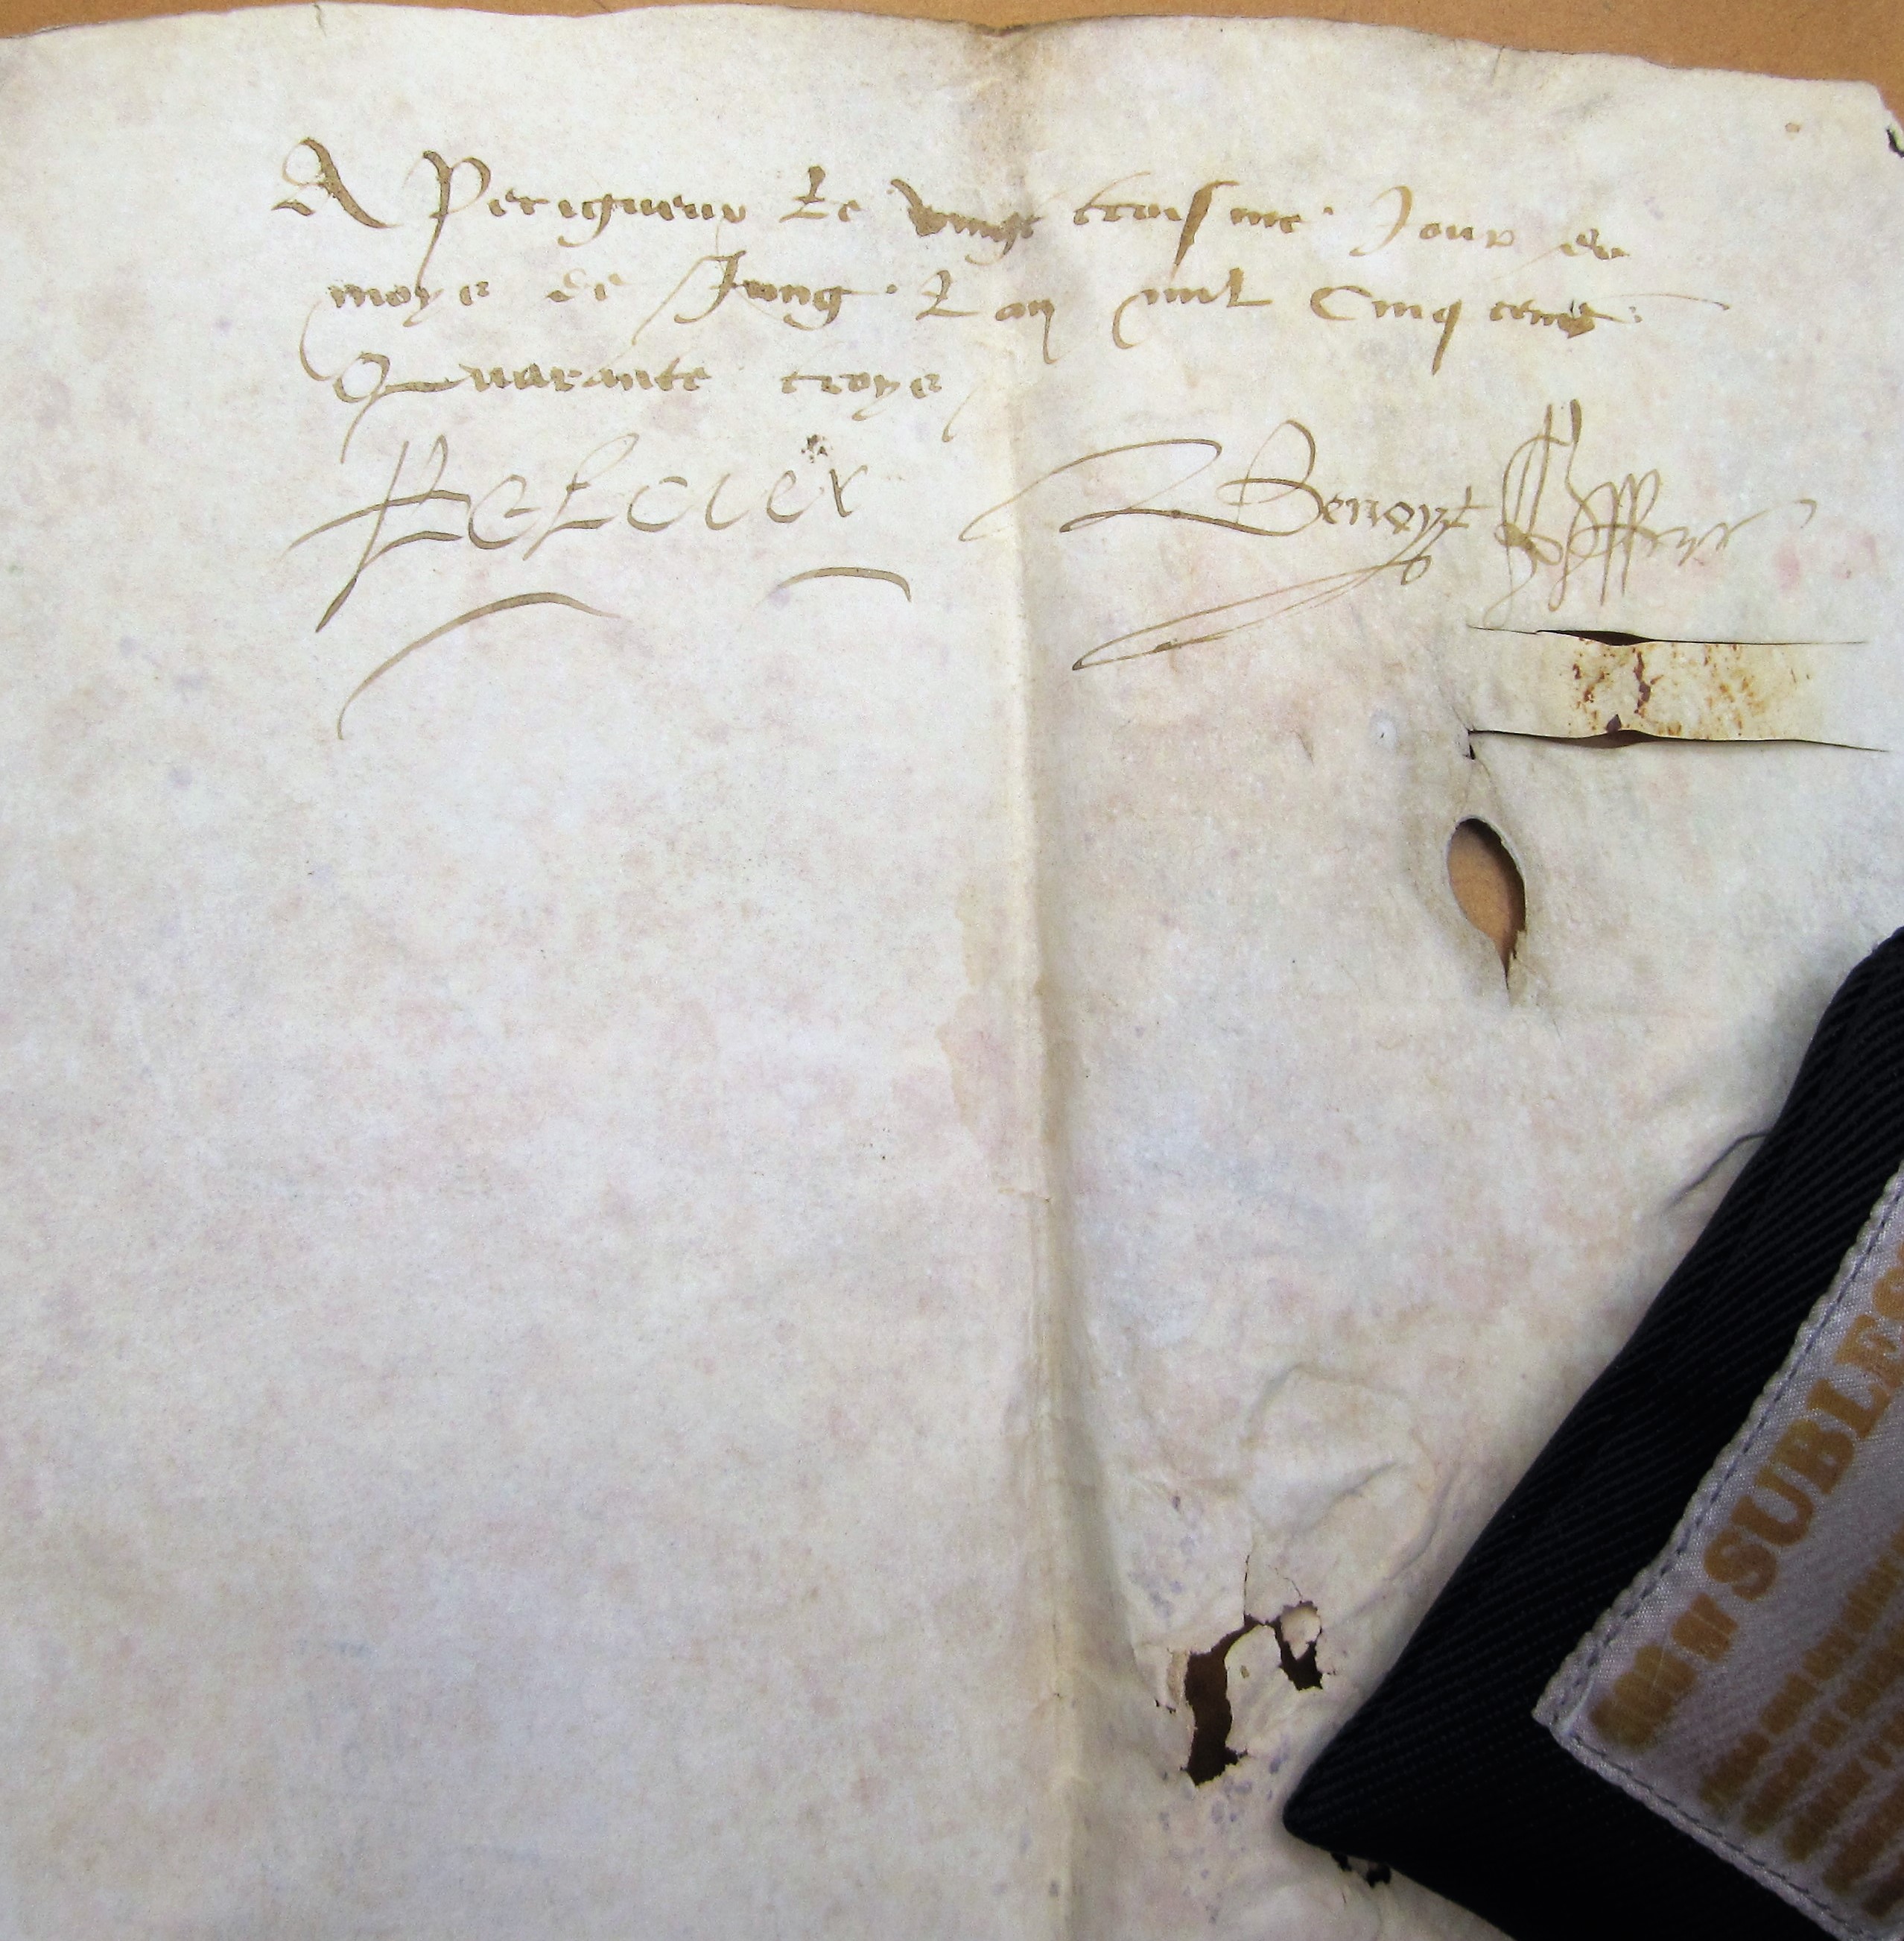 A Perigueux Le vingt troisme Jour du
moys de Jung Lan mil Cinq cens
Quarante troys
Benoyt
SUBLES